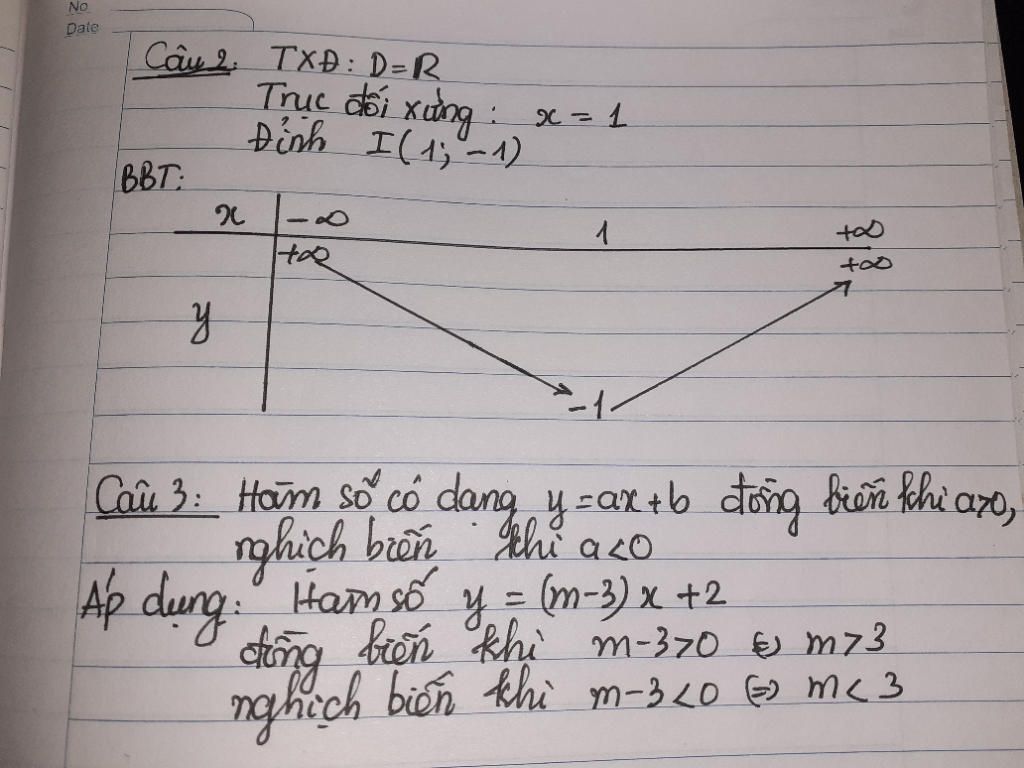 No
Date
Câu 2: TXĐ: D=R
Trục đối xứng: x = 1
Đỉnh I(1; -1)
BBT:
x -∞ 1 +∞
+∞ +∞
y
-1
Câu 3: Hàm số có dạng y=ax+b đồng biến khi a>0,
nghịch biến khi a<0
Áp dụng: Hàm số y = (m-3)x +2
đồng biến khi m-3>0 ⇔ m>3
nghịch biến khi m-3<0 ⇔ m<3